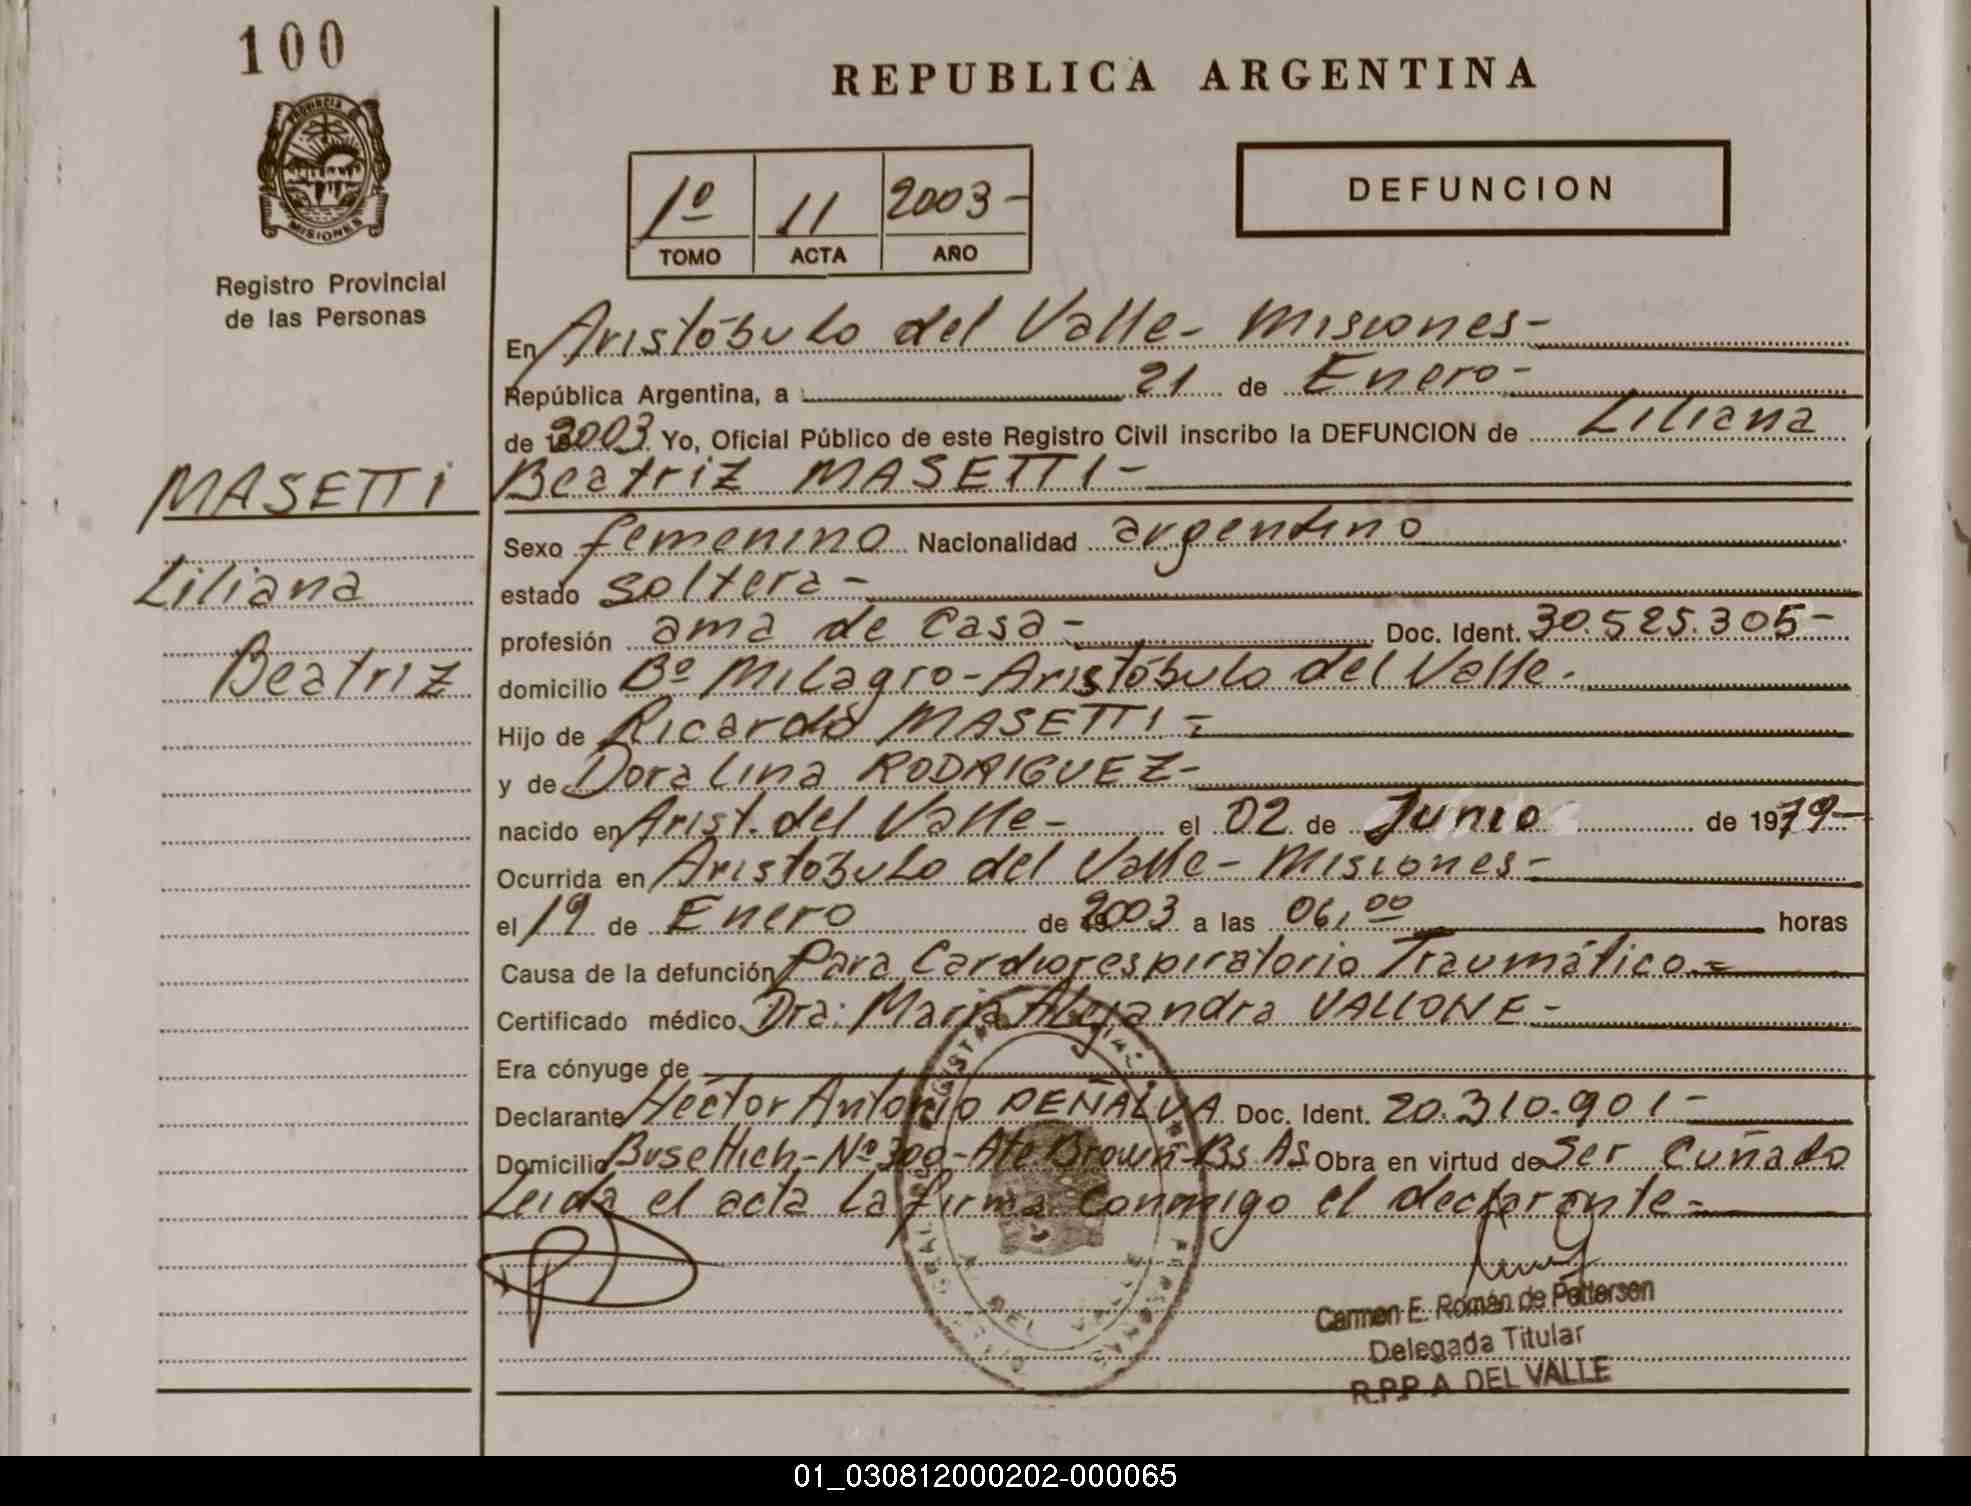 100
PROVINCIA
MISIONES
Registro Provincial
de las Personas
REPUBLICA ARGENTINA
1º 11 2003-
TOMO ACTA AÑO
DEFUNCION
En Aristóbulo del Valle- Misiones-
República Argentina, a 21 de Enero-
de 2003. Yo, Oficial Público de este Registro Civil inscribo la DEFUNCION de Liliana
Beatriz MASETTI-
MASETTI
Liliana
Beatriz
Sexo femenino Nacionalidad argentino
estado soltera-
profesión ama de casa- Doc. Ident. 30.525.305-
domicilio Bº Milagro-Aristóbulo del Valle.
Hijo de Ricardo MASETTI-
y de Doralina RODRIGUEZ-
nacido en Arist. del Valle- el 02 de Junio de 1979-
Ocurrida en Aristóbulo del Valle- Misiones-
el 19 de Enero de 2003 a las 06,00 horas
Causa de la defunción Para Cardiorespiratorio Traumático.=
Certificado médico Dra: Maria Alejandra VALLONE-
Era cónyuge de
Declarante Héctor Antonio PEÑALVA Doc. Ident. 20.310.901-
Domicilio Nº 300-Ate Brown-Bs As Obra en virtud de Ser Cuñado
Leida el acta la firma conmigo el declarante-
Carmen E. Román de Pettersen
Delegada Titular
R.P.P. A. DEL VALLE
01_030812000202-000065